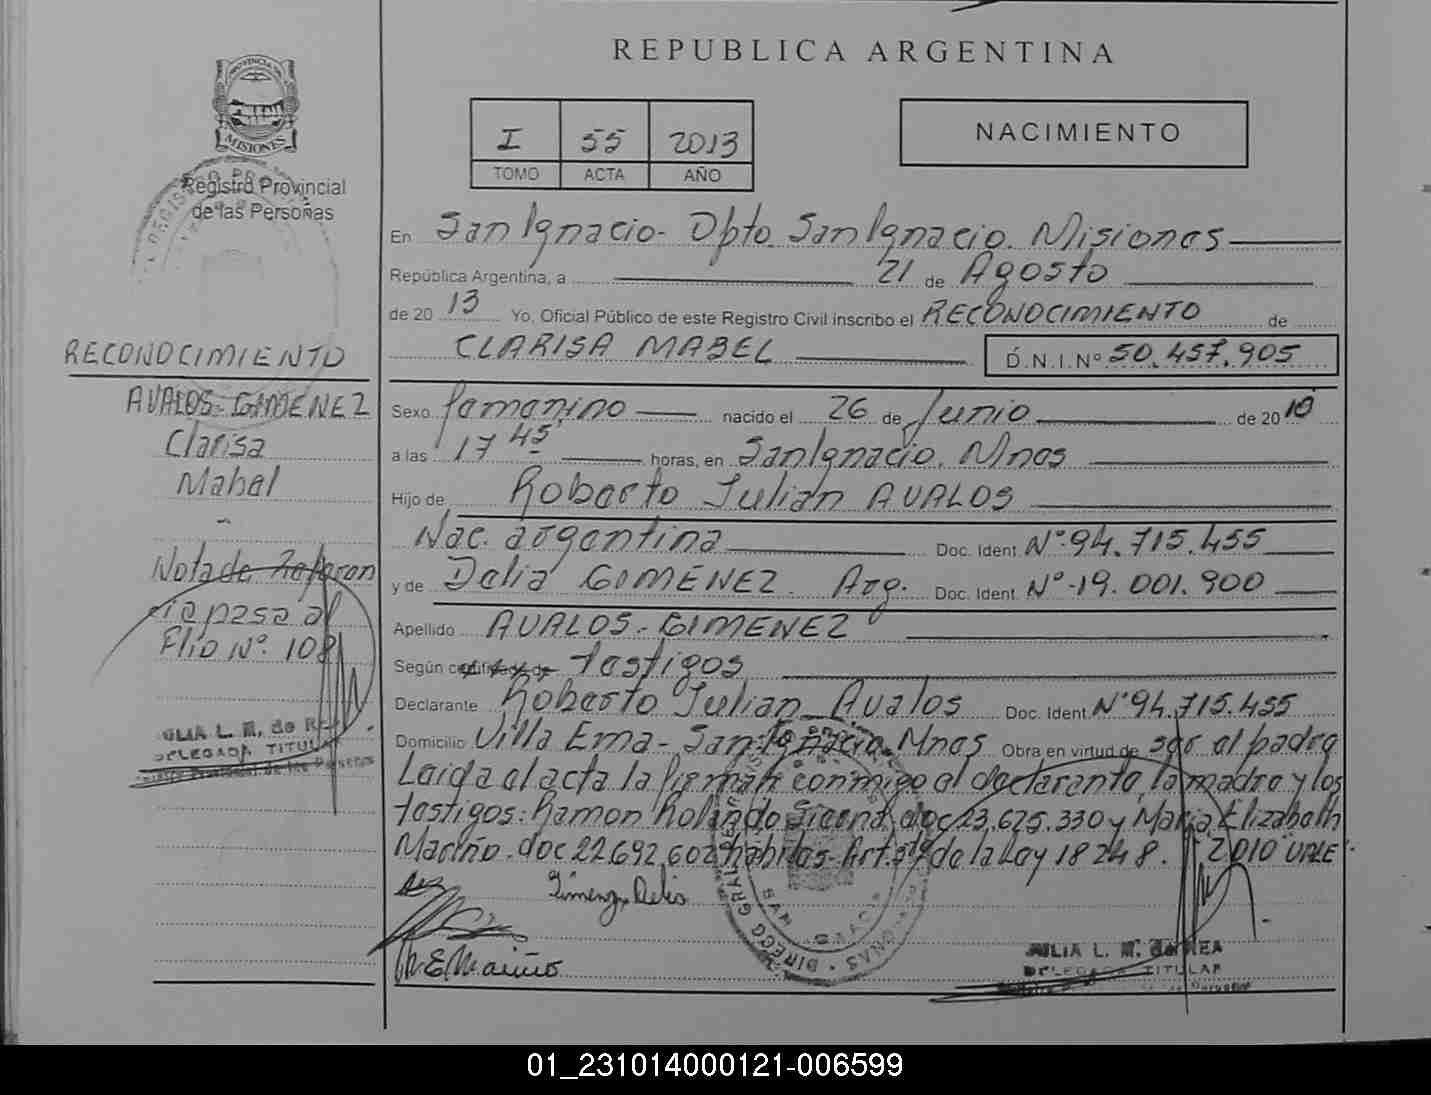 REPUBLICA ARGENTINA
PROVINCIA DE
MISIONES
Registro Provincial
de las Personas
I 55 2013
TOMO ACTA AÑO
NACIMIENTO
En San Ignacio - Dpto. San Ignacio. Misiones
República Argentina, a 21 de Agosto
de 20 13 Yo, Oficial Público de este Registro Civil inscribo el RECONOCIMIENTO de
CLARISA MABEL D.N.I.Nº 50.457.905
Sexo femenino nacido el 26 de Junio de 20 10
a las 17 45 horas, en San Ignacio. Mnes
Hijo de Roberto Julian AVALOS
Nac. argentina Doc. Ident. Nº 94.715.455
y de Delia GIMENEZ. Arg. Doc. Ident. Nº -19.001.900
Apellido AVALOS - GIMENEZ
Según certificado de testigos
Declarante Roberto Julian Avalos Doc. Ident. Nº 94.715.455
Domicilio Villa Ema - San Ignacio, Mnes Obra en virtud de ser el padre
Leida el acta la firman conmigo el declarante, la madre y los
testigos: Ramon Rolando doc 23.625.330 y Maria Elizabeth
Mariño. doc 22.692.602 habiles. Art. de la Ley 18248. 2010 VALE
Gimenez Delia
M. E. Mariño
JULIA L. M. de REA
DELEGADA TITULAR
RECONOCIMIENTO
AVALOS - GIMENEZ
Clarisa
Mabel
Nota de Referen
cia pasa al
Flio Nº 108
JULIA L. M. de REA
DELEGADA TITULAR
Registro Provincial de las Personas
01_231014000121-006599